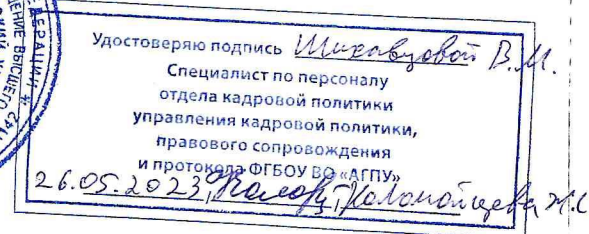 Удостоверяю подпись Шихавцовой В.М.
Специалист по персоналу
отдела кадровой политики
управления кадровой политики,
правового сопровождения
и протокола ФГБОУ ВО «АГПУ»
26.05.2023, Коломойцева
ДЕРАЦИИ *
ДЕНИЕ ВЫСШЕГО